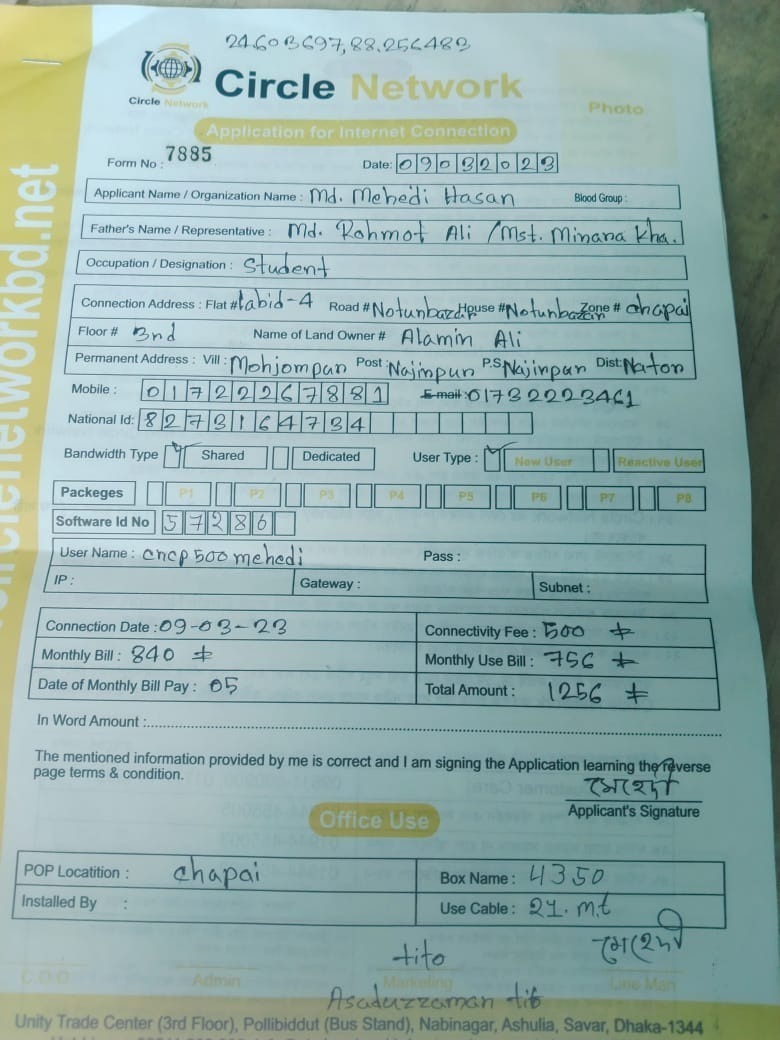 24.603697,88.256483
Circle Network
Circle Network
Photo
Application for Internet Connection
Form No : 7885
Date: 09032023
Applicant Name / Organization Name : Md. Mehedi Hasan Blood Group :
Father's Name / Representative : Md. Rohmot Ali /Mst. Minara Kha.
Occupation / Designation : Student
Connection Address : Flat # labid-4 Road # Notunbazar House # Notunbazar Zone # chapai
Floor # 3nd Name of Land Owner # Alamin Ali
Permanent Address : Vill : Mohjompur Post : Najirpur P.S Najirpur Dist: Nator
Mobile : 01722267881 E-mail : 01732223461
National Id: 8273164734
Bandwidth Type Shared Dedicated User Type : New User Reactive User
Packeges P1 P2 P3 P4 P5 P6 P7 P8
Software Id No 57286
User Name : cncp500mehedi Pass :
IP : Gateway : Subnet :
Connection Date : 09-03-23 Connectivity Fee : 500
Monthly Bill : 840 Monthly Use Bill : 756
Date of Monthly Bill Pay : 05 Total Amount : 1256
In Word Amount :
The mentioned information provided by me is correct and I am signing the Application learning the reverse
page terms & condition.
মেহেদী
Applicant's Signature
Office Use
POP Locatition : chapai Box Name : 4350
Installed By : Use Cable : 21. mt
tito মেহেদী
C.O.O Admin Marketing Line Man
Asaduzzaman tito
Unity Trade Center (3rd Floor), Pollibiddut (Bus Stand), Nabinagar, Ashulia, Savar, Dhaka-1344